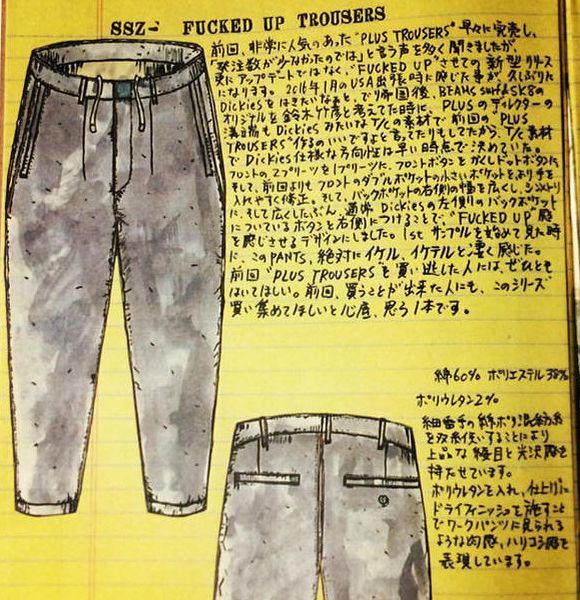 SSZ- FUCKED UP TROUSERS
前回、非常に人気のあった"PLUS TROUSERS"早々に完売し、
「発注数が少なかったのでは」と言う声を多く聞きましたが、
更にアップデートではなく、"FUCKED UP"させての新型リリース
になります。2016年1月のUSA出張時に感じた事が、久しぶりに
Dickiesをはきたいなぁと、で帰国後、BEAMS surf&SK8の
Dickiesオリジナルを鈴木竹彦と考えてた時に、PLUSのディレクターの
溝端もDickiesみたいなT/Cの素材で前回の"PLUS
TROUSERS"作るのいいですよと言ってたりもしてたから、T/C素材
でDickies仕様な方向性は早い時点で決めていた。
フロントの2プリーツを1プリーツに、フロントボタンをかくしドットボタンに、
そして、前回よりもフロントのダブルポケットの小さいポケットをより手を
入れやすく修正。そして、バックポケットの右側の幅を広くし、
に、そして広くしたぶん、通常Dickiesの左側のバックポケット
についているボタンを右側につけることで、"FUCKED UP"感
を感じさせるデザインにしました。1stサンプルを始めて見た時
に、このPANTS、絶対にイケル、イケテルと凄く感じた。
前回"PLUS TROUSERS"を買い逃した人には、ぜひとも
はいてほしい。前回、買うことが出来た人にも、このシリーズ
買い集めてほしいと心底、思う1本です。
綿60% ポリエステル38%
ポリウレタン2%
細番手の綿ポリ混紡糸
を双糸使いすることにより
上品な綾目と光沢感を
持たせています。
ポリウレタンを入れ、仕上げに
ドライフィニッシュを施すこと
でワークパンツに見られる
ような肉感、ハリコシ感を
表現しています。